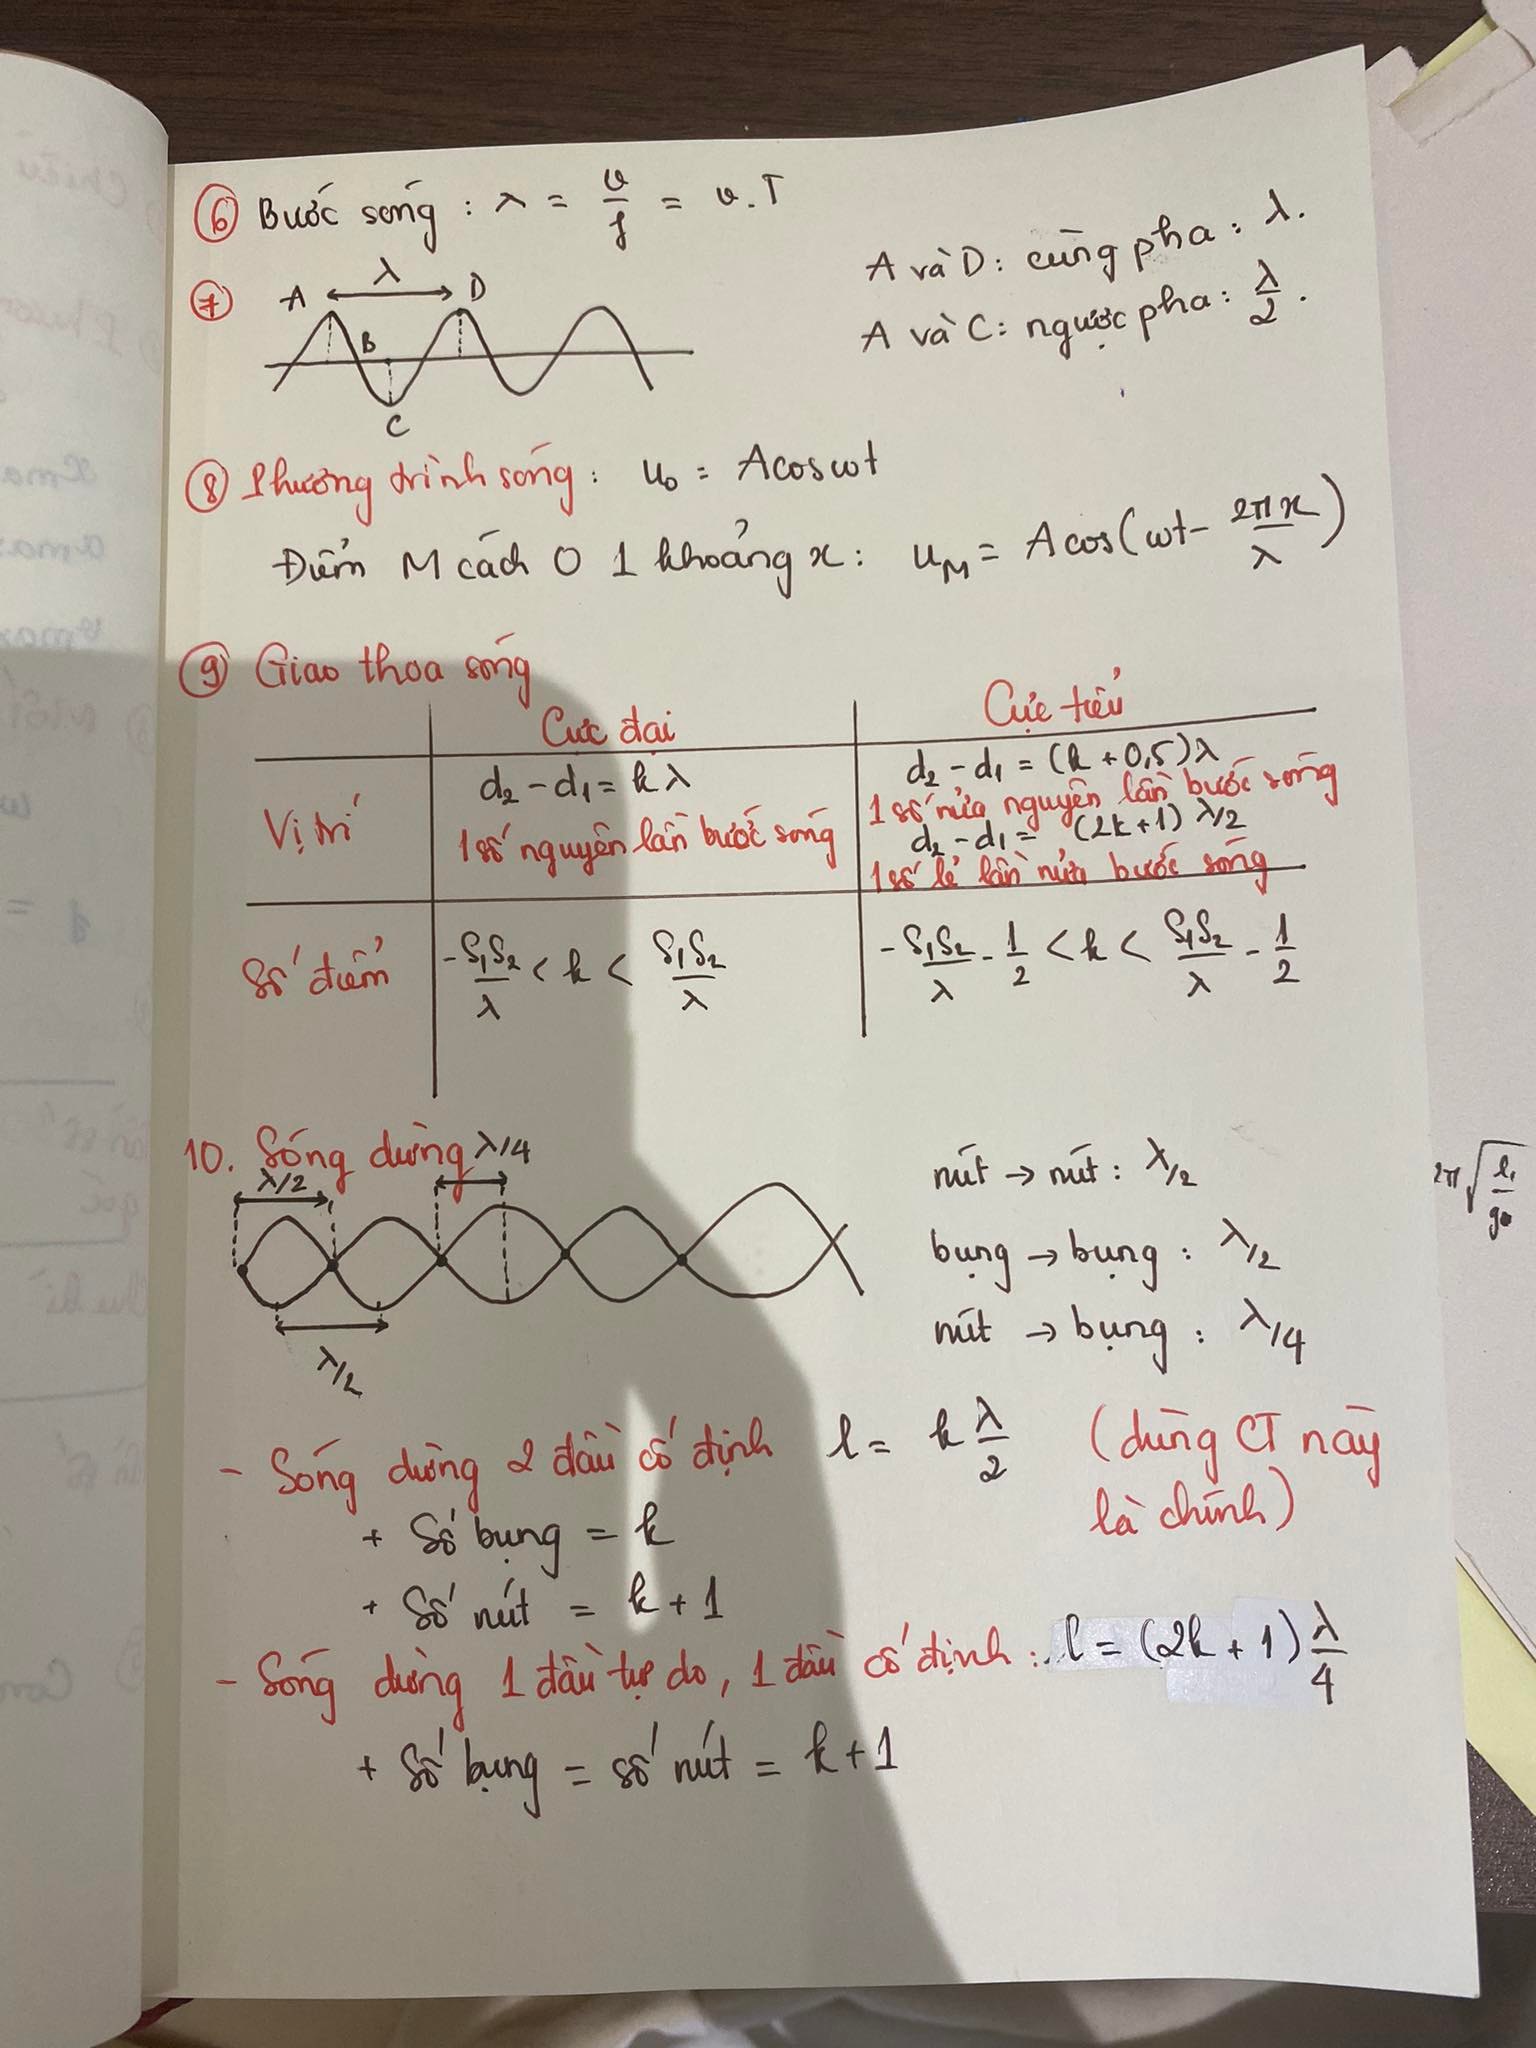 ⑥ Bước sóng : λ = v/f = v.T
⑦ A λ D
B
C
A và D: cùng pha : λ.
A và C: ngược pha : λ/2.
⑧ Phương trình sóng : u₀ = Acosωt
Điểm M cách O 1 khoảng x : u_M = Acos(ωt - 2πx/λ)
⑨ Giao thoa sóng
Cực đại Cực tiểu
Vị trí
d₂ - d₁ = kλ
1 số nguyên lần bước sóng
d₂ - d₁ = (k + 0,5)λ
1 số nửa nguyên lần bước sóng
d₂ - d₁ = (2k+1) λ/2
1 số lẻ lần nửa bước sóng
Số điểm
-S₁S₂/λ < k < S₁S₂/λ
-S₁S₂/λ - 1/2 < k < S₁S₂/λ - 1/2
10. Sóng dừng
λ/2 λ/4
λ/2
nút → nút : λ/2
bụng → bụng : λ/2
nút → bụng : λ/4
- Sóng dừng 2 đầu cố định l = k λ/2 (dùng CT này
là chính)
+ Số bụng = k
+ Số nút = k + 1
- Sóng dừng 1 đầu tự do, 1 đầu cố định : l = (2k + 1) λ/4
+ Số bụng = số nút = k + 1